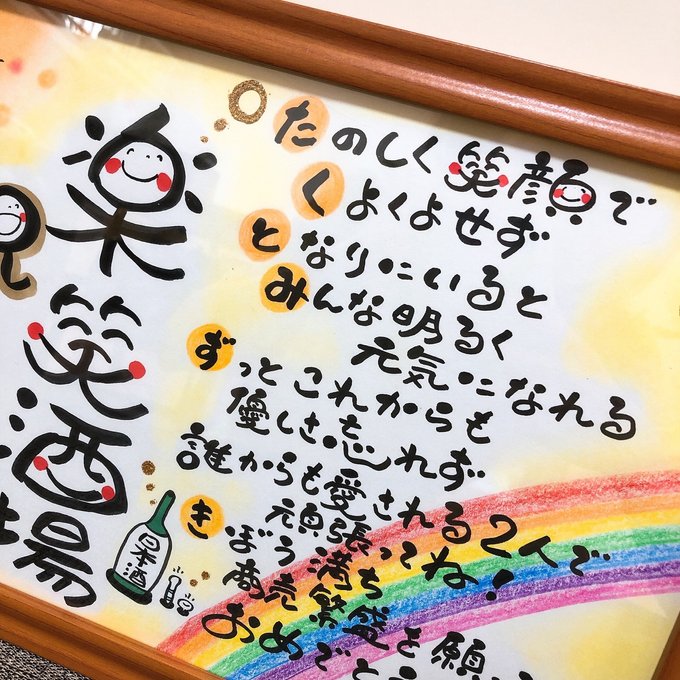 楽
笑
酒
場
たのしく笑顔で
くよくよせず
となりにいると
みんな明るく
元気になれる
ずっとこれからも
優しさ忘れず
誰からも愛される2人で
頑張ってね!
きぼう満ち
商売繁盛を願
おめでとう
日本酒